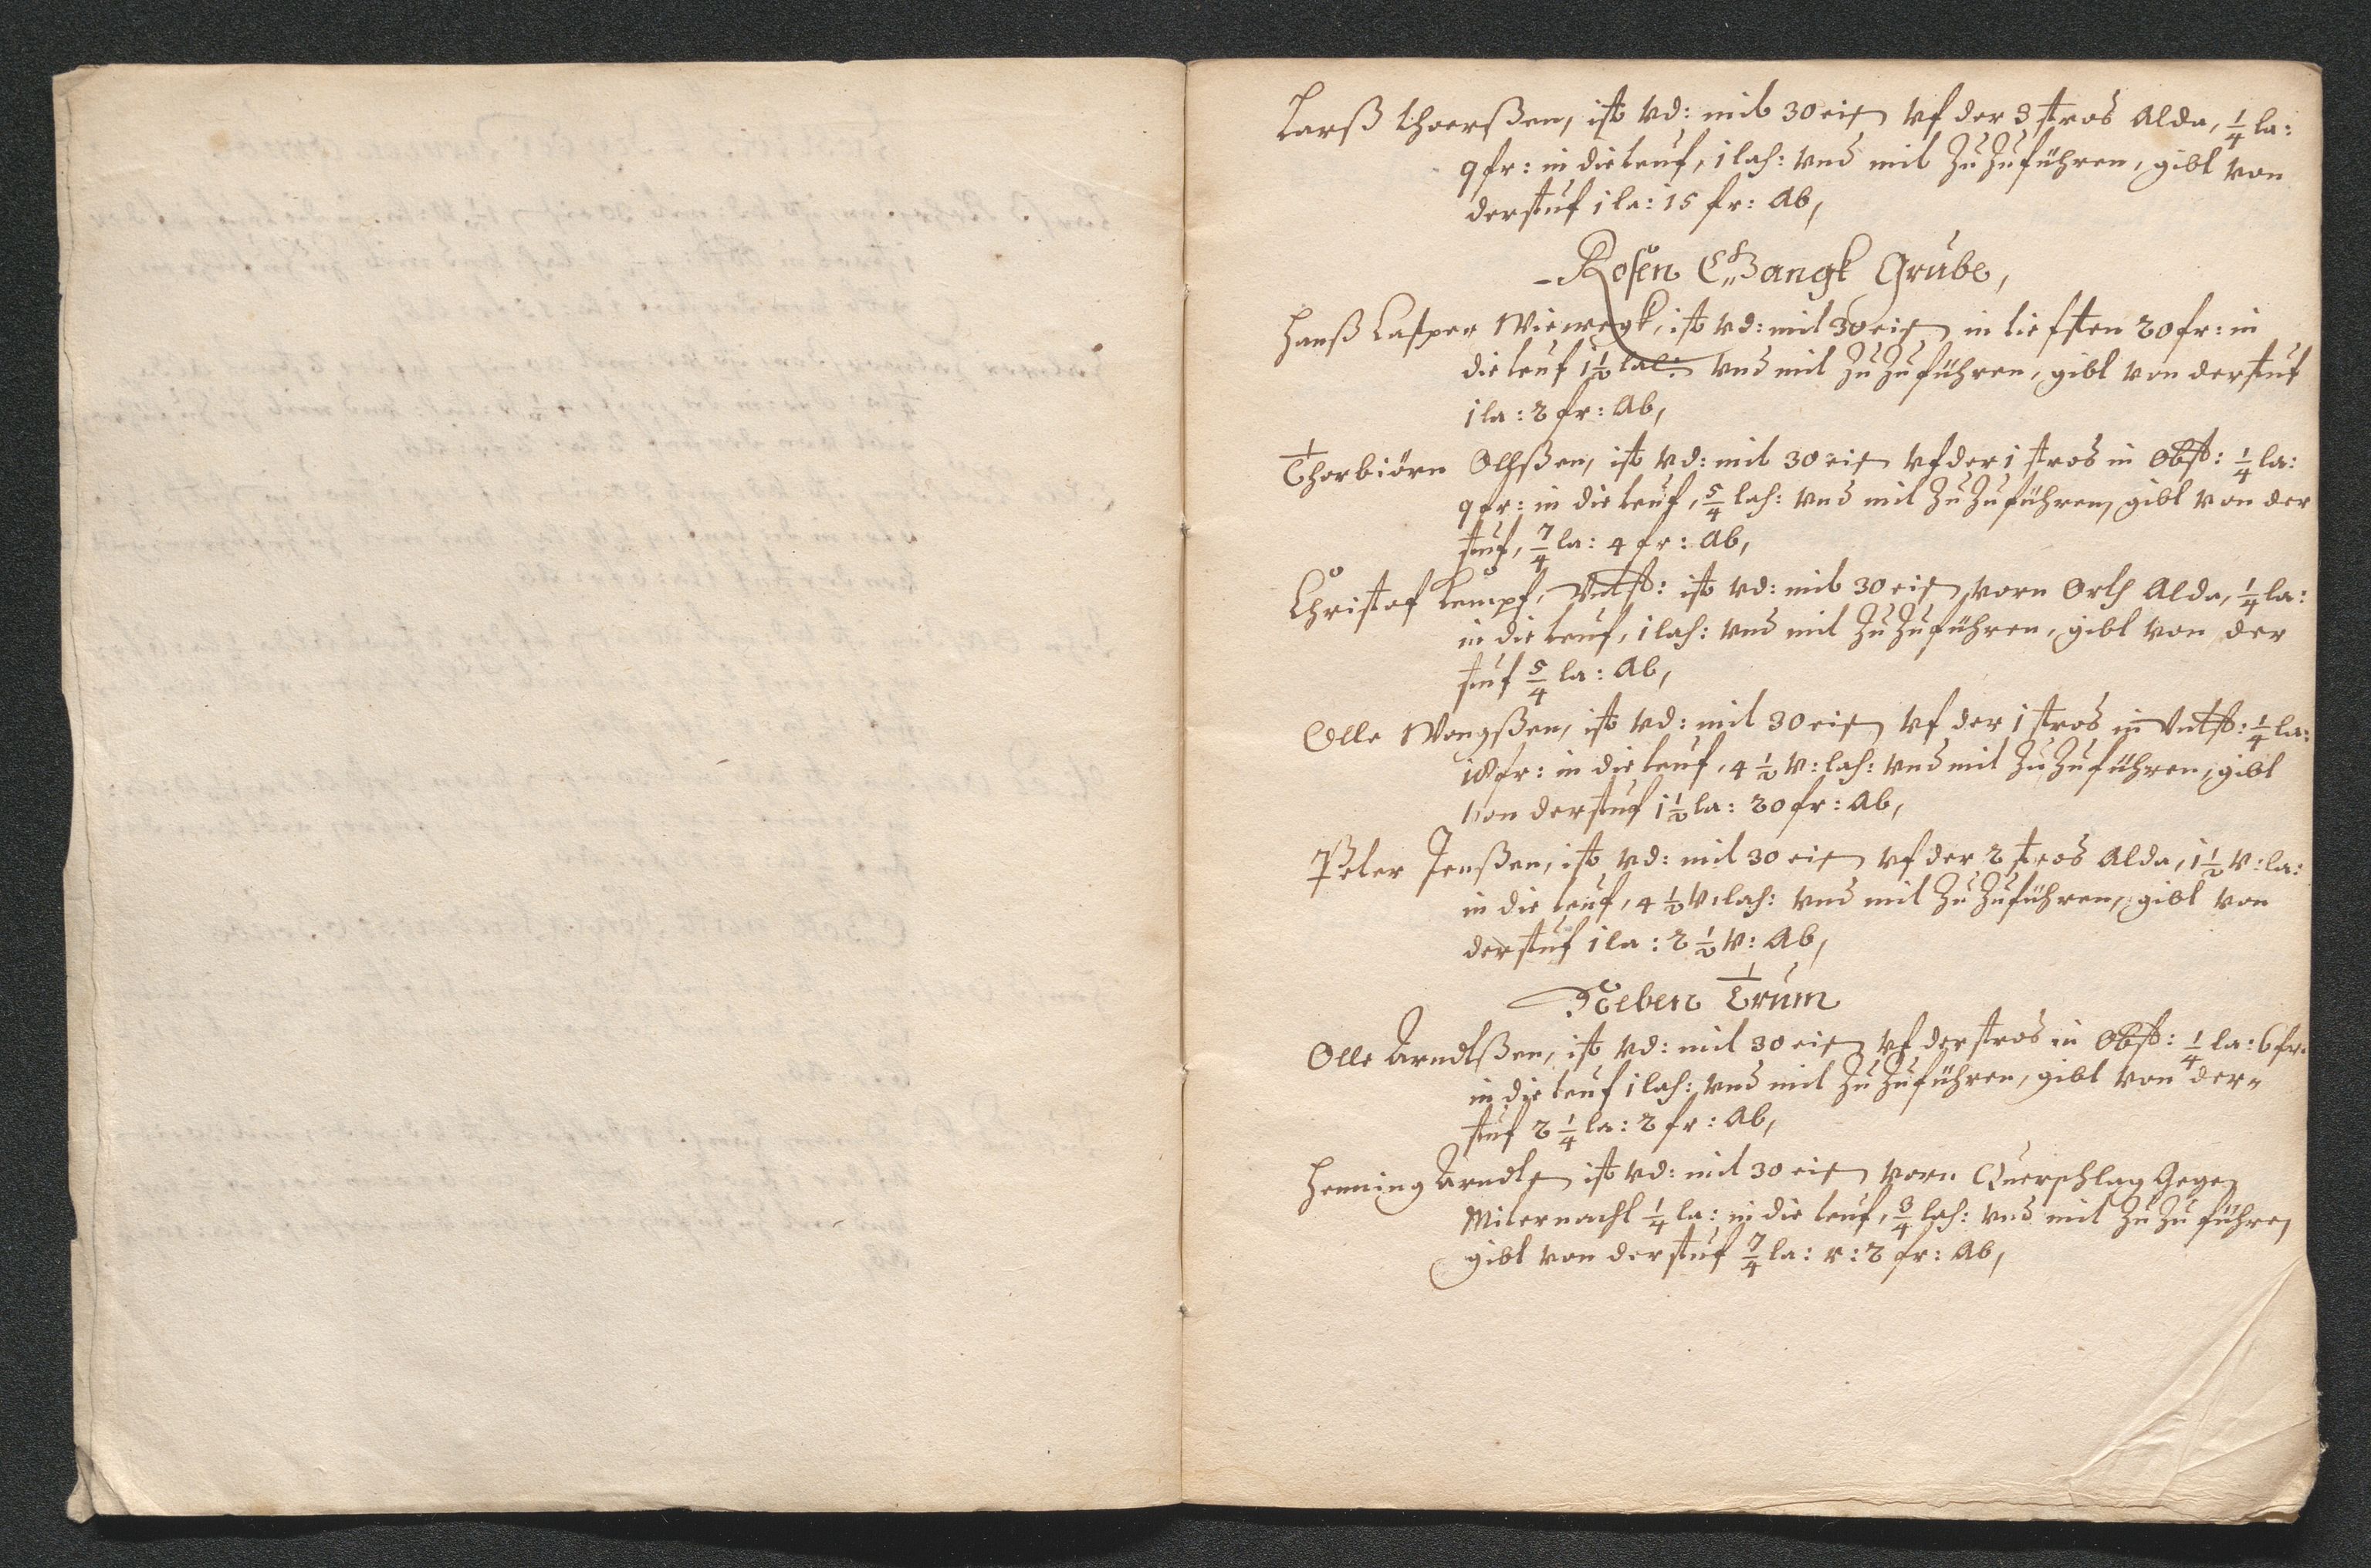 Larß thoerßen, ist vd: mit 30 eis vf der 3 stros Alda, 1/4 la:
9 fr: in die teuf, 1 lah: vnd mit Zu Zuführen, gibt von
der stuf 1 la: 15 fr: Ab,
Rosen Grube,
Hanß Casper Wiewegk, ist vd: mit 30 eis in tieffsten 20 fr: in
die teuf 1 1/2 lah: vnd mit Zu Zuführen, gibt von der stuf
1 la: 2 fr: Ab,
Thorbiörn Olhßen, ist vd: mit 30 eis vf der 1 stros in Obst: 1/4 la:
9 fr: in die teuf, 5/4 lah: vnd mit Zu Zuführen, gibt von der
stuf, 7/4 la: 4 fr: Ab,
Christof Kempf, Vntst: ist vd: mit 30 eis, vorn Orth Alda, 1/4 la:
in die teuf, 1 lah: vnd mit Zu Zuführen, gibt von der
stuf 5/4 la: Ab,
Olle Mongßen, ist vd: mit 30 eis vf der 1 stros in Vntst: 1/4 la:
18 fr: in die teuf, 4 1/2 v: lah: vnd mit Zu Zuführen, gibt
von der stuf 1 1/2 la: 20 fr: Ab,
Peter Jenßen, ist vd: mit 30 eis vf der 2 stros Alda, 1 1/2 v: la:
in die teuf, 4 1/2 v: lah: vnd mit Zu Zuführen, gibt von
der stuf 1 la: 2 1/2 v: Ab,
Neben Trum
Olle Arndtßen, ist vd: mit 30 eis vf der stros in Obst: 1/4 la: 6 fr:
in die teuf 1 lah: vnd mit Zu Zuführen, gibt von der=
stuf 2 1/4 la: 2 fr: Ab,
Henning Arndts ist vd: mit 30 eis vorn Querschlag Gegen
Miternacht 1/4 la: in die teuf, 3/4 lah: vnd mit Zu Zuführen
gibt von der stuf 7/4 la: v: 2 fr: Ab,